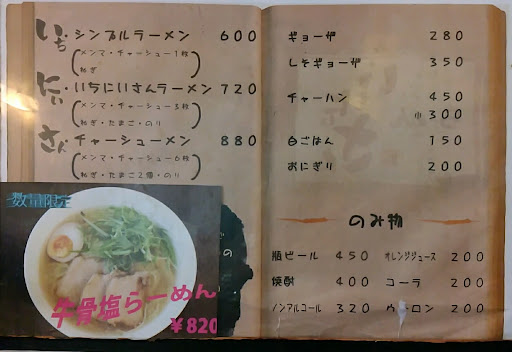 いち シンプルラーメン 600
(メンマ・チャーシュー1枚
ねぎ)
にい いちにいさんラーメン 720
(メンマ・チャーシュー3枚
ねぎ・たまご・のり)
さん チャーシューメン 880
(メンマ・チャーシュー6枚
ねぎ・たまご2個・のり)
数量限定
牛骨塩らーめん
¥820
の
ギョーザ 280
しそギョーザ 350
チャーハン 450
小 300
白ごはん 150
おにぎり 200
のみ物
瓶ビール 450 オレンジジュース 200
焼酎 400 コーラ 200
ノンアルコール 320 ウーロン 200